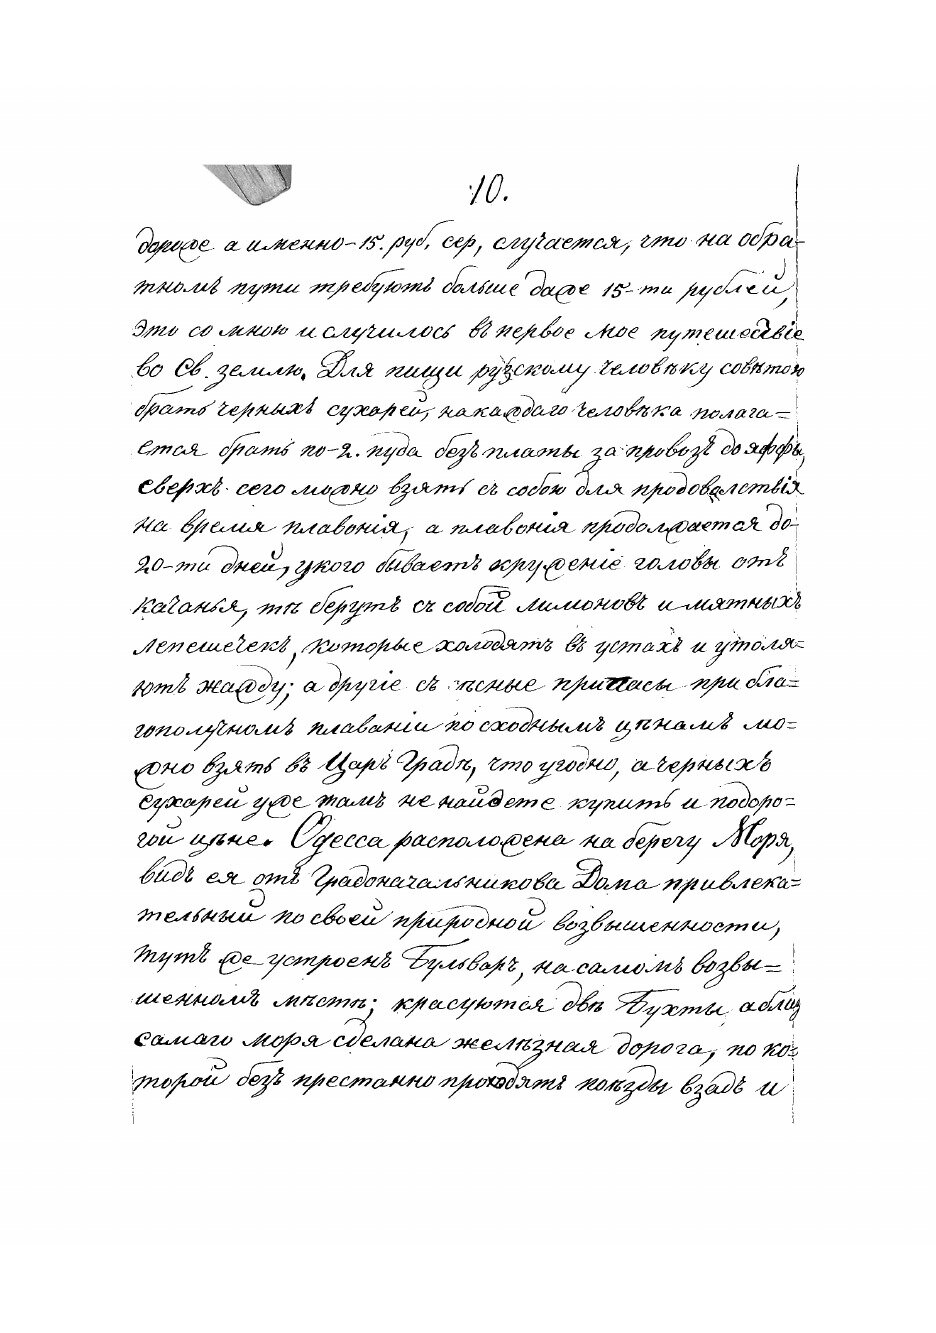 10.
дороже а именно-15. руб, сер, случается, что на обра-
тномъ пути требуютъ больше даже 15-ти рублей,
Это со мною и случилось въ первое мое путешествіе
во Св. землю. Для пищи рускому человѣку совѣтою
брать черныхъ сухарей, на каждаго человѣка полага=
ется брать по-2. пуда безъ платы за провозъ до яффы,
сверхъ сего можно взять съ собою для продоволствія
на время плавонія, а плавонія продолжается до-
20-ти дней, у кого бываетъ круженіе головы отъ
качанья, тѣ берутъ съ собой лимоновъ и мятныхъ
лепешечекъ, которые холодятъ въ устахъ и утоля=
ютъ жажду; а другіе съѣсные припасы при бла=
гополучномъ плаваніи по сходнымъ цѣнамъ мо=
жно взять въ Царь Градѣ, что угодно, а черныхъ
сухарей уже тамъ не найдете купить и подоро=
гой цѣне. Одесса расположена на берегу Моря,
видъ ея отъ Градоначальникова Дома привлека=
тельный по своей природной возвышенности,
тутъ же устроенъ Бульваръ, на самомъ возвы=
шенномъ мѣстѣ; красуются двѣ Бухты а близ
самаго моря сделана желѣзная дорога, по ко=
торой безъ престанно проходятъ поѣзды взадъ и